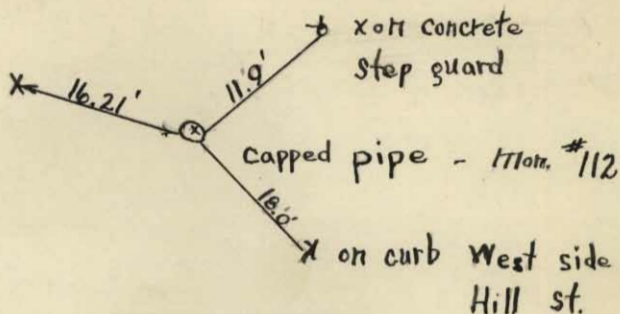 x on concrete
step guard
X
16.21'
11.9'
capped pipe - Mon. #112
18.0'
X on curb West side
Hill st.